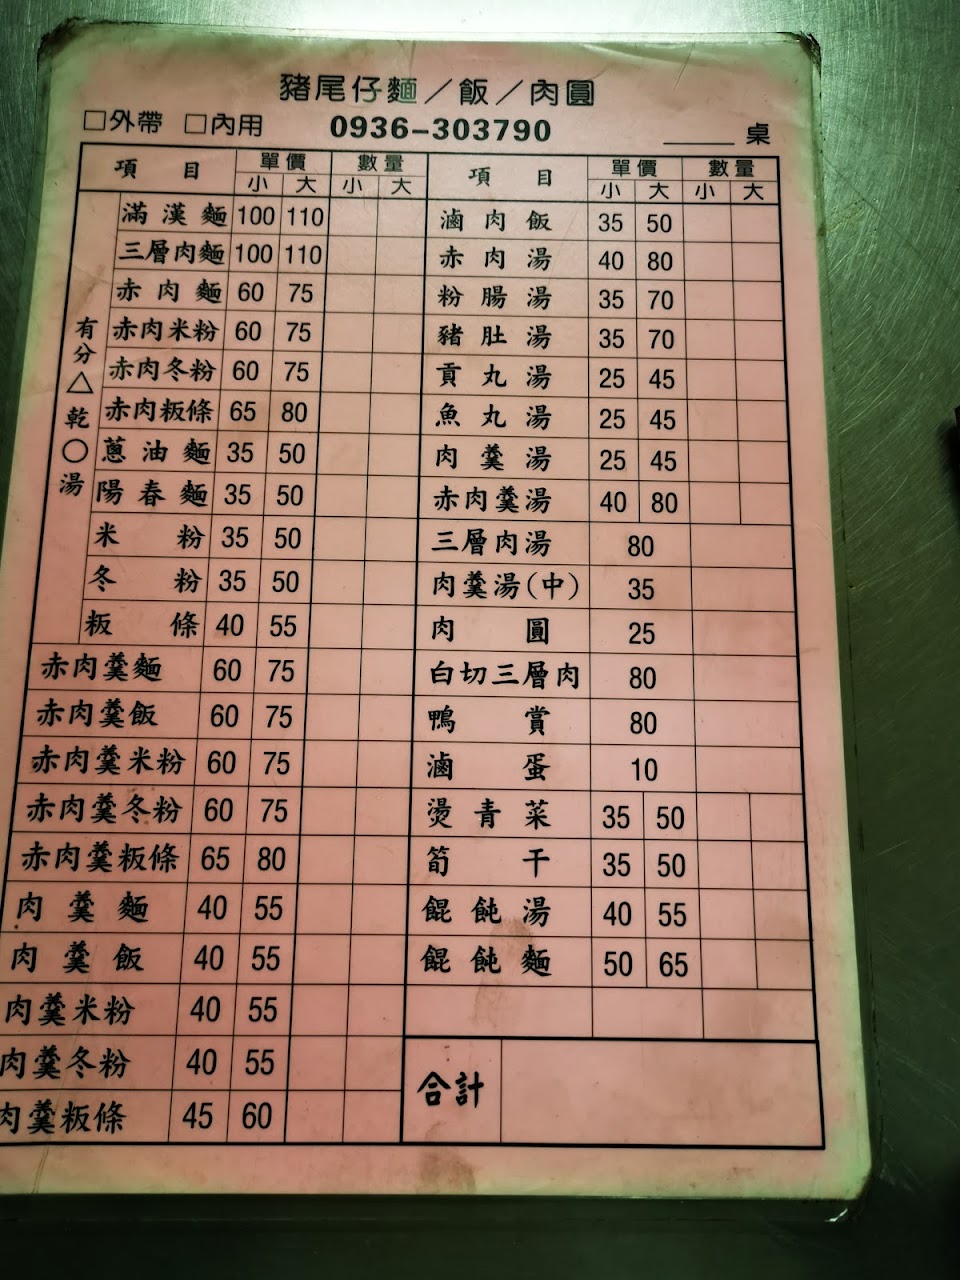 豬尾仔麵／飯／肉圓
□外帶 □內用 0936-303790 ＿＿桌
項目 單價 數量 項目 單價 數量
小 大 小 大 小 大 小 大
有分△乾○湯
滿漢麵 100 110 滷肉飯 35 50
三層肉麵 100 110 赤肉湯 40 80
赤肉麵 60 75 粉腸湯 35 70
赤肉米粉 60 75 豬肚湯 35 70
赤肉冬粉 60 75 貢丸湯 25 45
赤肉粄條 65 80 魚丸湯 25 45
蔥油麵 35 50 肉羹湯 25 45
陽春麵 35 50 赤肉羹湯 40 80
米粉 35 50 三層肉湯 80
冬粉 35 50 肉羹湯(中) 35
粄條 40 55 肉圓 25
赤肉羹麵 60 75 白切三層肉 80
赤肉羹飯 60 75 鴨賞 80
赤肉羹米粉 60 75 滷蛋 10
赤肉羹冬粉 60 75 燙青菜 35 50
赤肉羹粄條 65 80 筍干 35 50
肉羹麵 40 55 餛飩湯 40 55
肉羹飯 40 55 餛飩麵 50 65
肉羹米粉 40 55
肉羹冬粉 40 55 合計
肉羹粄條 45 60